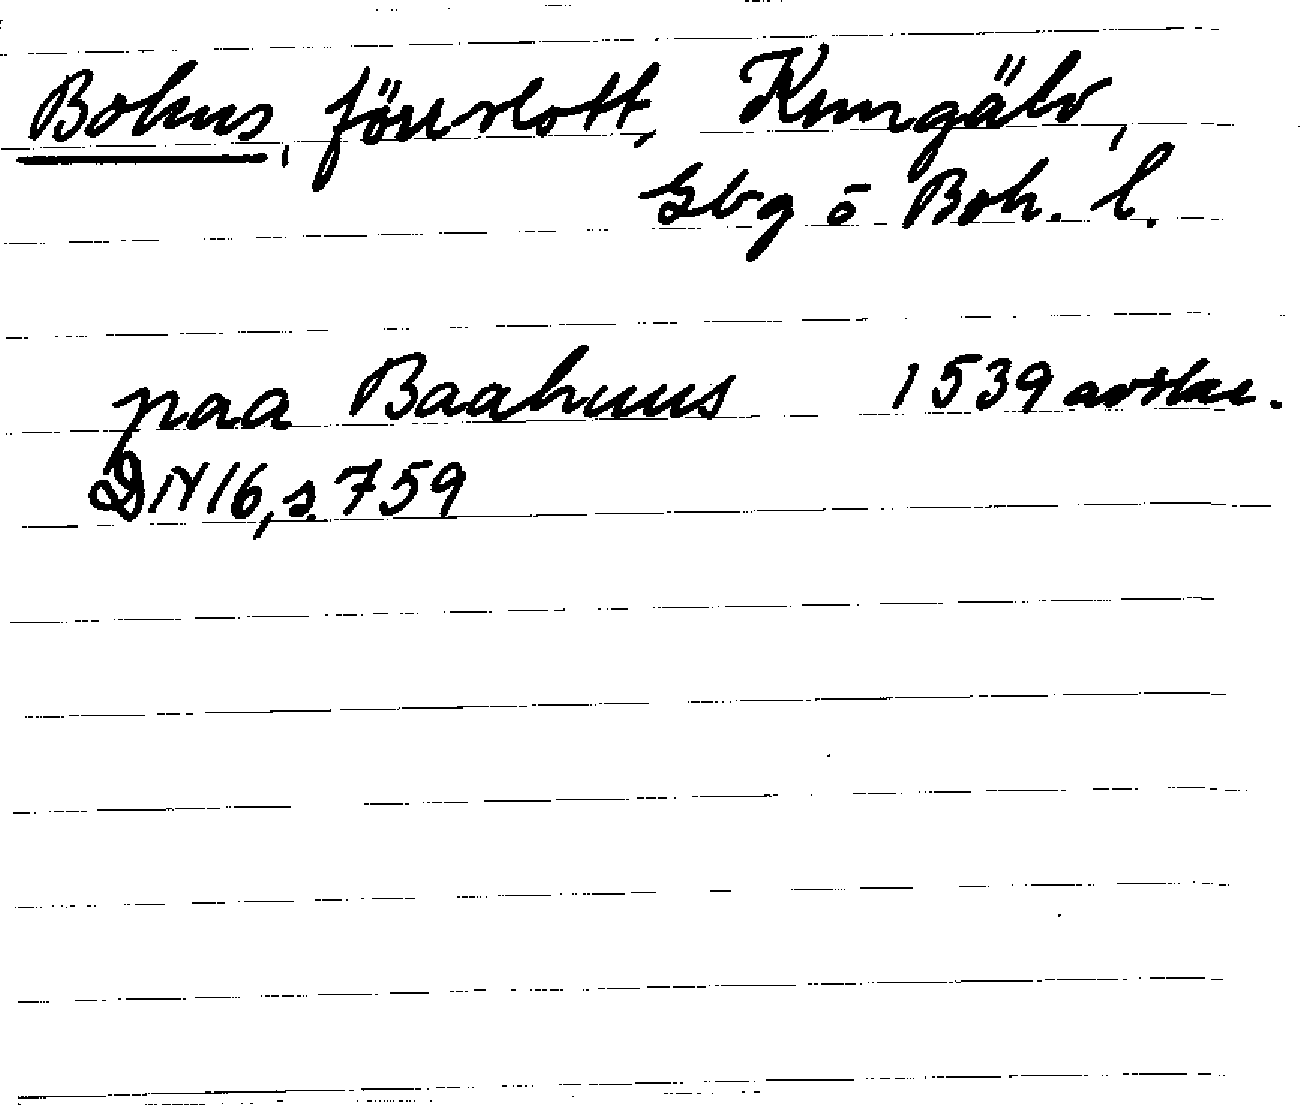 Bohus, förr slott, Kungälv,
Gbg o Boh. l.
paa Baahuus 1539 avskr.
DN 16, s. 759